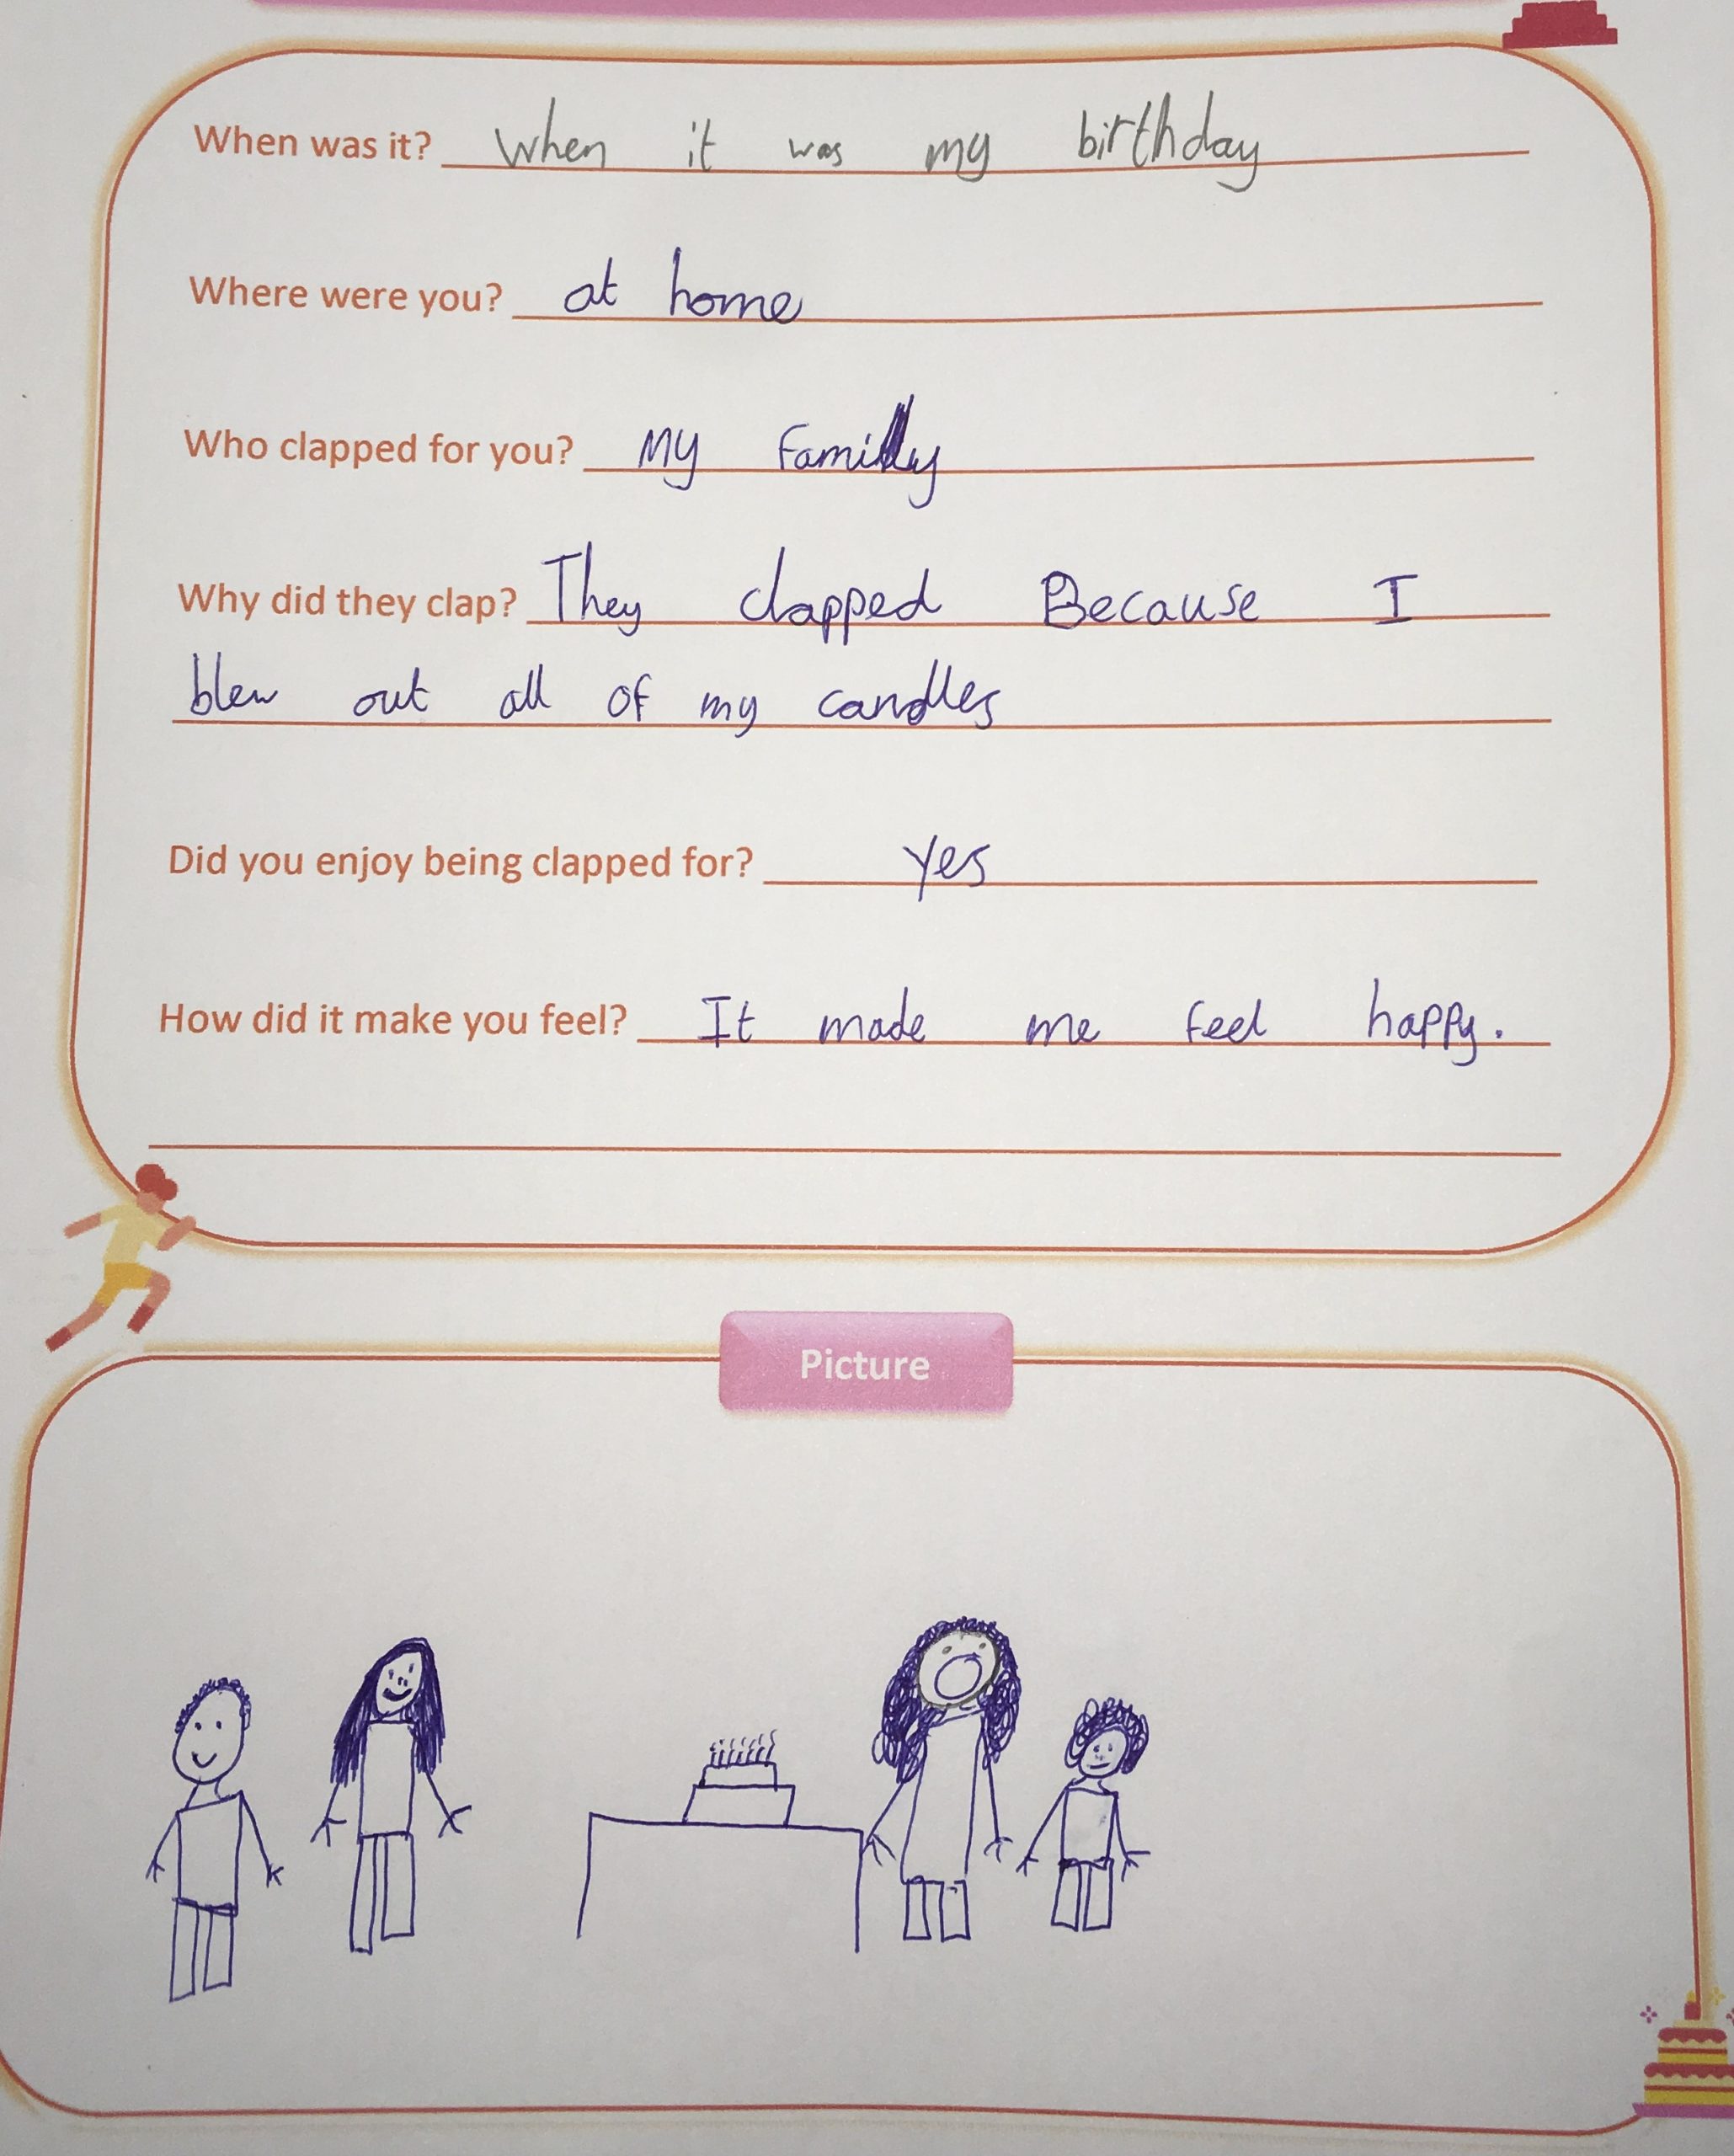 When was it? when it was my birthday
Where were you? at home
Who clapped for you? My Family
Why did they clap? They clapped Because I
blew out all of my candles
Did you enjoy being clapped for? yes
How did it make you feel? It made me feel happy.
Picture